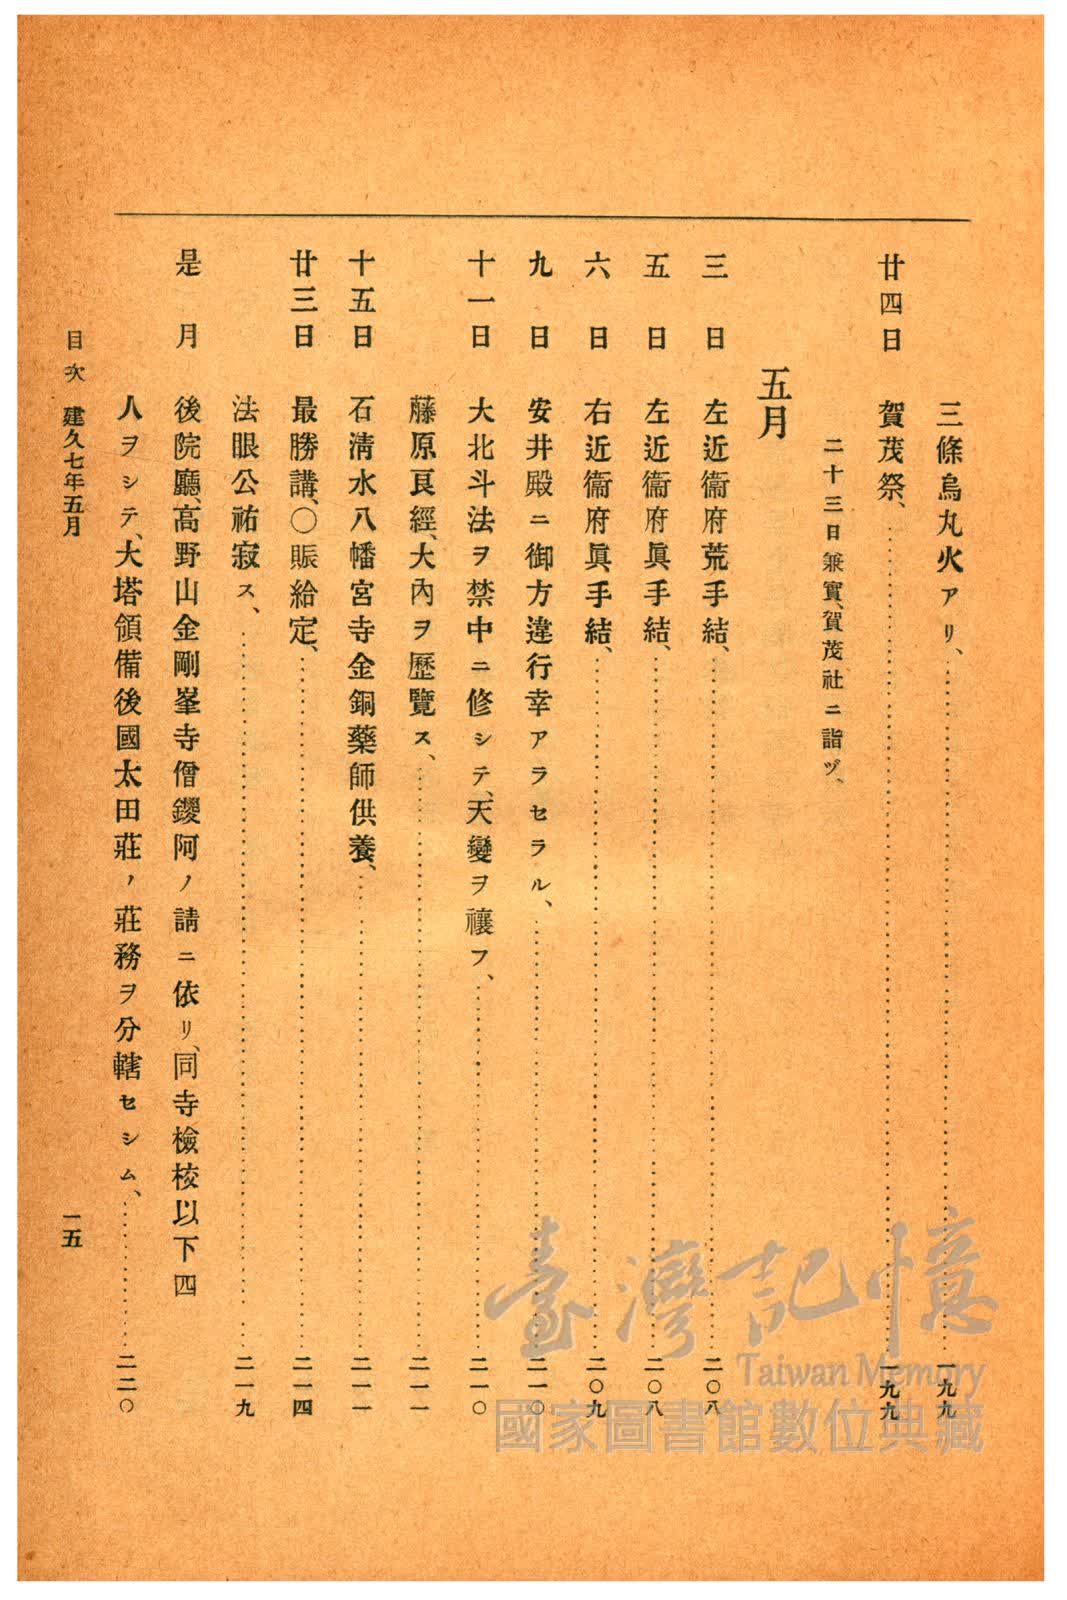 三條烏丸火アリ、………一九九
廿四日 賀茂祭、………一九九
二十三日兼實、賀茂社ニ詣ヅ、
五月
三日 左近衞府荒手結、………二〇八
五日 左近衞府眞手結、………二〇八
六日 右近衞府眞手結、………二〇九
九日 安井殿ニ御方違行幸アラセラル、………二一〇
十一日 大北斗法ヲ禁中ニ修シテ、天變ヲ禳フ、………二一〇
藤原良經、大內ヲ歷覽ス、………二一一
十五日 石淸水八幡宮寺金銅藥師供養、………二一一
廿三日 最勝講、〇賑給定、………二一四
法眼公祐寂ス、………二一九
是月 後院廳、高野山金剛峯寺僧鑁阿ノ請ニ依リ、同寺檢校以下四
人ヲシテ、大塔領備後國太田莊ノ莊務ヲ分轄セシム、………二二〇
目次 建久七年五月 一五
臺灣記憶
Taiwan Memory
國家圖書館數位典藏